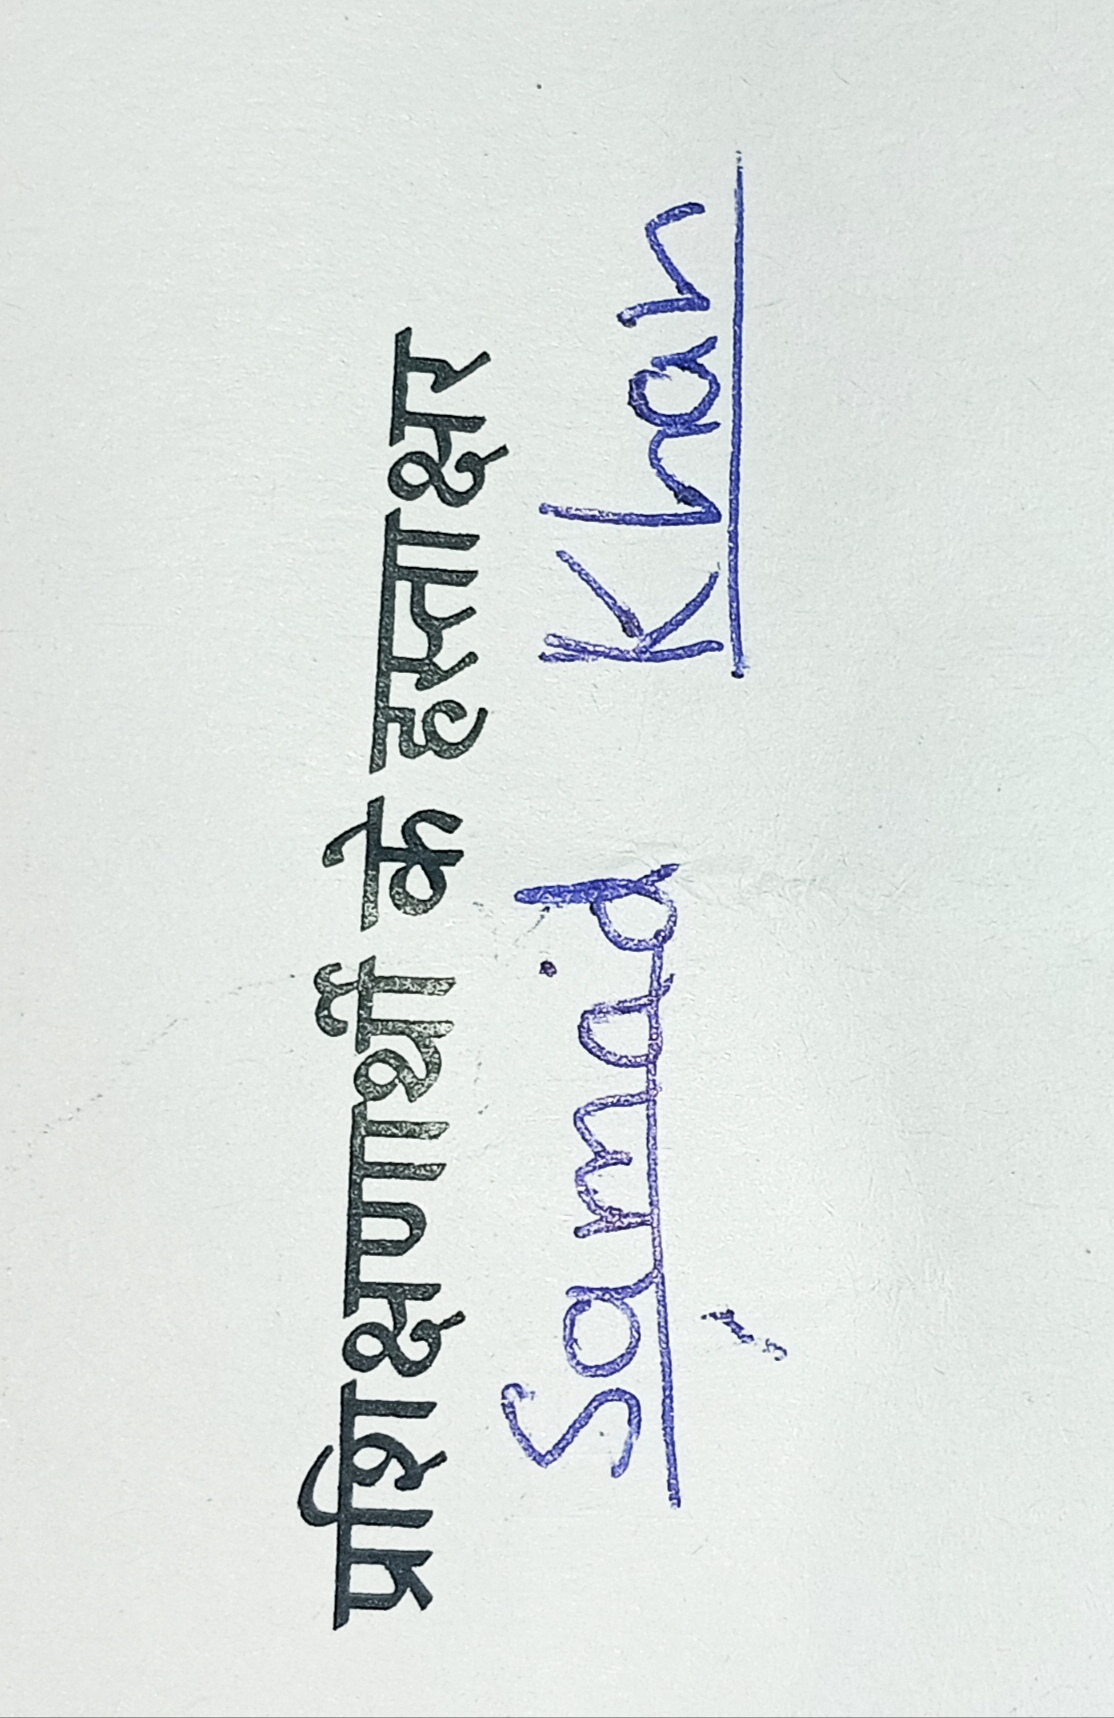 प्रशिक्षणार्थी के हस्ताक्षर
Samaid Khan